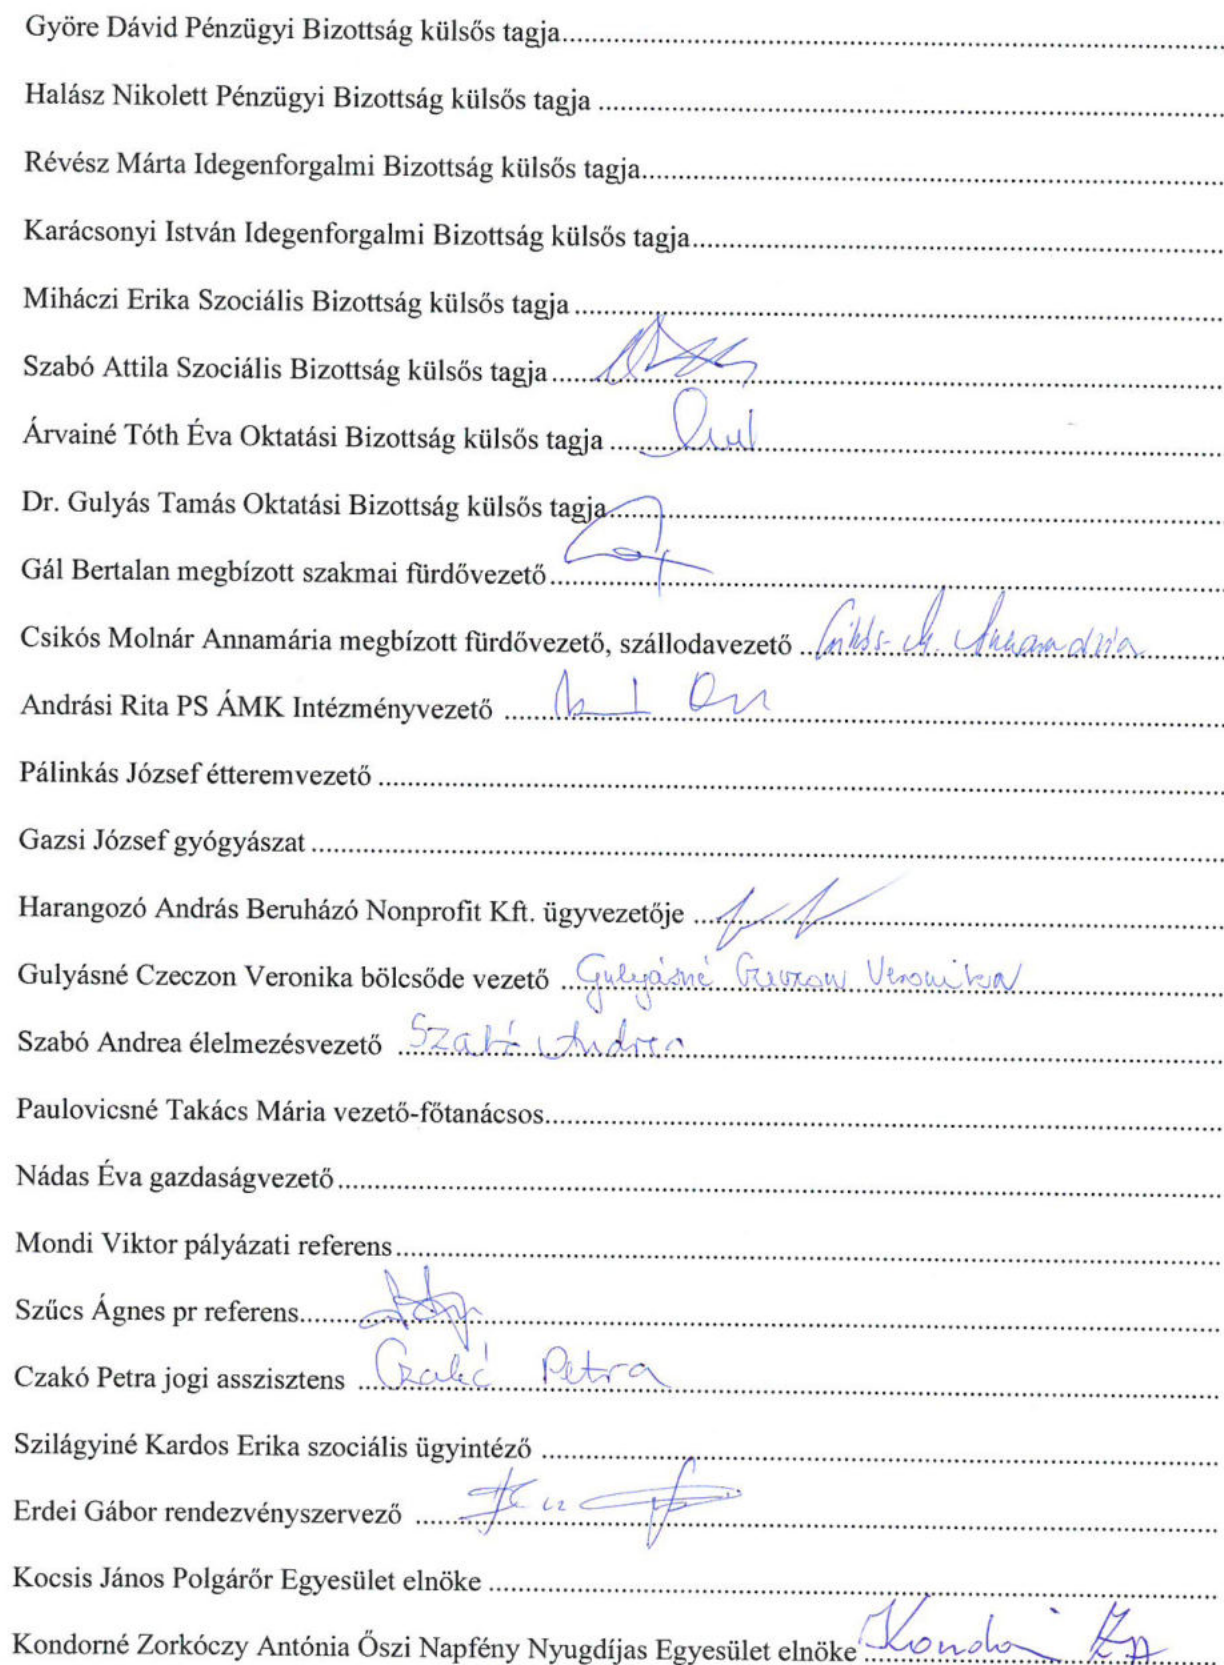 Györe Dávid Pénzügyi Bizottság külsős tagja
Halász Nikolett Pénzügyi Bizottság külsős tagja
Révész Márta Idegenforgalmi Bizottság külsős tagja
Karácsonyi István Idegenforgalmi Bizottság külsős tagja
Miháczi Erika Szociális Bizottság külsős tagja
Szabó Attila Szociális Bizottság külsős tagja
Árvainé Tóth Éva Oktatási Bizottság külsős tagja
Dr. Gulyás Tamás Oktatási Bizottság külsős tagja
Gál Bertalan megbízott szakmai fürdővezető
Csikós Molnár Annamária megbízott fürdővezető, szállodavezető Csikós-M. Annamária
Andrási Rita PS ÁMK Intézményvezető
Pálinkás József étteremvezető
Gazsi József gyógyászat
Harangozó András Beruházó Nonprofit Kft. ügyvezetője
Gulyásné Czeczon Veronika bölcsőde vezető Gulyásné Czeczon Veronika
Szabó Andrea élelmezésvezető Szabó Andrea
Paulovicsné Takács Mária vezető-főtanácsos
Nádas Éva gazdaságvezető
Mondi Viktor pályázati referens
Szűcs Ágnes pr referens
Czakó Petra jogi asszisztens Czakó Petra
Szilágyiné Kardos Erika szociális ügyintéző
Erdei Gábor rendezvényszervező
Kocsis János Polgárőr Egyesület elnöke
Kondorné Zorkóczy Antónia Őszi Napfény Nyugdíjas Egyesület elnöke